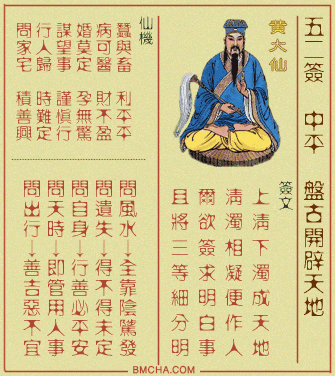 五二簽 中平 盤古開闢天地
黃大仙
簽文
上清下濁成天地
清濁相凝便作人
爾欲簽求明白事
且將三等細分明
仙機
蠶與畜 利平平
病可醫 財不盈
婚莫定 孕無驚
謀望事 謹慎行
行人歸 時難定
問家宅 積善興
問風水→全靠陰騭發
問遺失→得不得未定
問自身→行善必平安
問天時→即管用人事
問出行→善吉惡不宜
BMCHA.COM